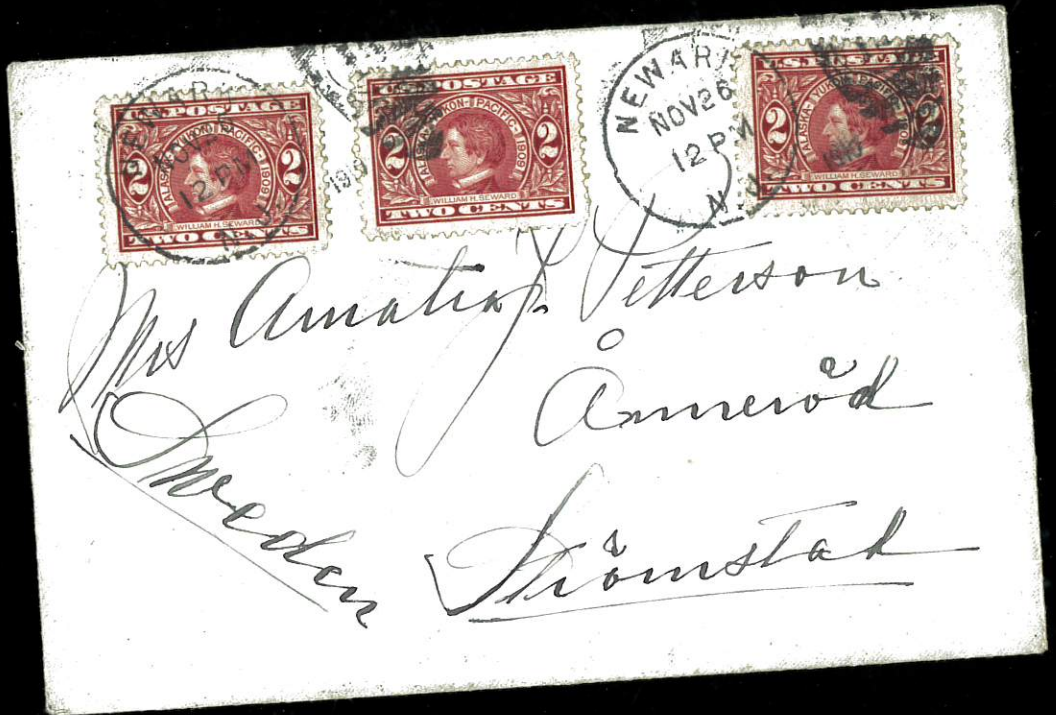 U.S. POSTAGE
ALASKA-YUKON-PACIFIC-1909
2 2
WILLIAM H. SEWARD
TWO CENTS
NEWARK
NOV
12 PM
N.J.
U.S. POSTAGE
ALASKA-YUKON-PACIFIC-1909
2 2
WILLIAM H. SEWARD
TWO CENTS
NEWARK
NOV 26
12 PM
N.J.
U.S. POSTAGE
ALASKA-YUKON-PACIFIC-1909
2 2
WILLIAM H. SEWARD
TWO CENTS
Mrs Amalia Petterson
Ånneröd
Strömstad
Sweden